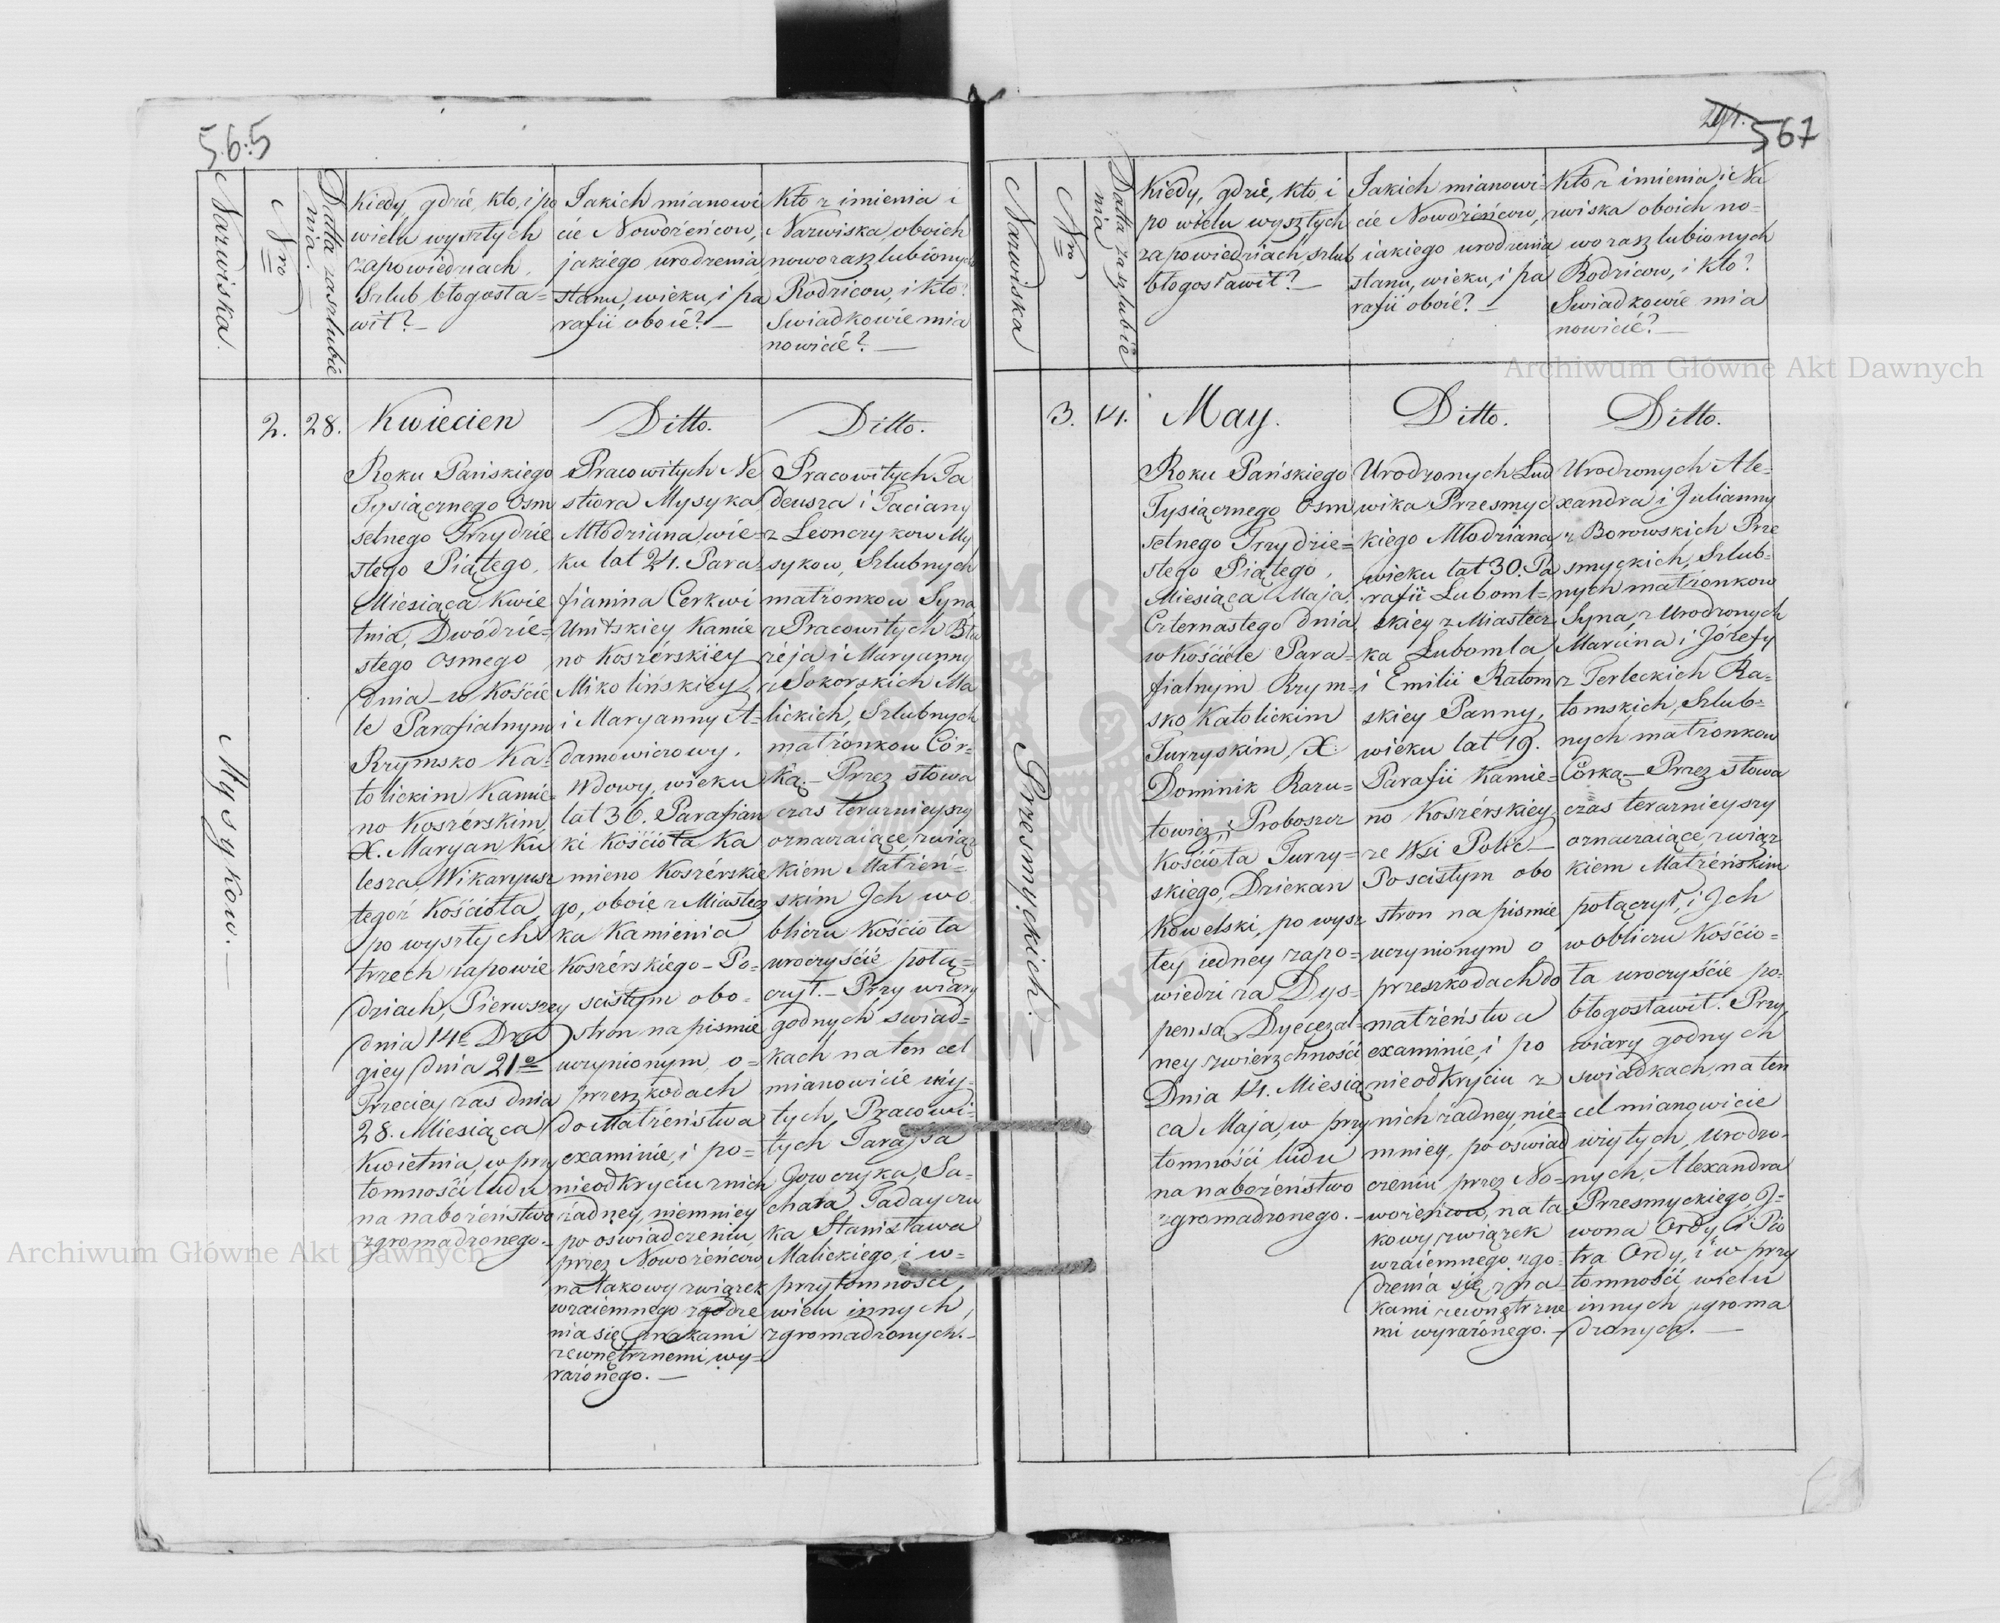 565
Nazwiska.
Nro
Datta zaszlubie
nia.
Kiedy, gdzie, kto, i po
wielu wyszłych
zapowiedziach,
Szlub błogosła=
wił?—
Jakich mianowi
cie Nowożeńcow,
jakiego urodzenia
stanu, wieku, i pa
rafii oboie?—
Kto z imienia i
Nazwiska, oboich
nowozaszlubionych
Rodzicow, i kto?
Swiadkowie mia
nowicie?—
Mysykow.—
2.
28.
Kwiecien
Roku Pańskiego
Tysiącznego Osm
setnego Trzydzie
stego Piątego,
Miesiąca Kwie
tnia, Dwódzie=
stego Osmego
dnia—w Kościé
le Parafialnym
Rzymsko Ka=
tolickim Kamie=
no Koszérskim,
X. Maryan Ku
lesza, Wikaryusz
tegoż Kościoła,
po wyszłych
trzech zapowie
dziach, Pierwszey
dnia 14o Dru
giey dnia 21o
Trzeciey zas dnia
28. Miesiąca
Kwietnia, w przy
tomności ludu
na nabożeństwo
zgromadzonego.—
Ditto.
Pracowitych Ne
stora Mysyka
Młodziana wie=
ku lat 24. Para=
fianina Cerkwi
Unitskiey Kamie
no Koszérskiey
Mikolińskiey
i Maryanny A=
damowiczowy.
Wdowy, wieku
lat 36. Parafian
ki Kościoła Ka
mieno Koszérskie
go, oboie z Miastecz
ka Kamienia
Koszérskiego—Po=
scisłym obo=
stron na pismie
uczynionym, o=
przeszkodach
do Małżeństwa
examinie, i po=
nieodkryciu znich
żadney, niemniey
po oświadczeniu,
przez Nowożeńcow
na takowy związek
wzaiemnego zgodze
nia się znakami
zewnętrznemi, wy=
rażónego.—
Ditto.
Pracowitych Ta
deusza i Taciany
z Leonczykow My
sykow, Szlubnych
małżonkow Syna
z Pracowitych Bła
żeja i Maryanny
z Sokorskich Ma
lickich, Szlubnych
małżonkow Cór=
ką.—Przez słowa
czas teraznieyszy
oznaczaiące, związ
kiem Małżeń=
skim Jch w o=
bliczu Kościoła
uroczyście połą=
czył.—Przy wiary
godnych swiad=
kach na ten cel
mianowicie wzy=
tych, Pracowi=
tych Tarasa
Jowczyka, Sa=
chara Tadayczu
ka Stanisława
Malickiego, i w=
przytomności,
wielu innych,
zgromadzonych.—
567
Nazwiska
Nro
Datta zaszlubie
nia
Kiedy, gdzie, kto, i
po wielu wyszłych
zapowiedziach, szlub
błogosławił?—
Jakich mianowi=
cie Nowożeńcow,
iakiego urodzenia
stanu, wieku, i pa
rafii oboie?—
Kto z imienia i Na
zwiska oboich no=
wozaszlubionych
Rodzicow, i kto?
Swiadkowie mia
nowicie?—
Przesmyckich.—
3.
14.
May.
Roku Pańskiego
Tysiącznego Osm
setnego Trzydzie=
stego Piątego,
Miesiąca Maja,
Czternastego dnia,
w Kościele Para=
fialnym Rzym=
sko Katolickim
Turzyskim, X:
Dominik Razu=
towicz, Proboszcz
Kościoła Turzy=
skiego, Dziekan
Kowelski, po wysz
łey iedney zapo=
wiedzi za Dys=
pensą Dyecezal=
ney zwierzchności
Dnia 14. Miesią
ca Maja, w przy
tomności ludu
na nabożeństwo
zgromadzonego.—
Ditto.
Urodzonych Lud
wika Przesmyc
kiego Młodziana
wieku lat 30. Pa
rafii Luboml=
skiey z Miastecz
ka Lubomla,
i Emilii Ratom
skiey Panny,
wieku lat 19.
Parafii Kamie=
no Koszérskiey
ze Wsi Polic—
Po scisłym obo
stron na pismie
uczynionym o
przeszkodach do
małżeństwa
examinie, i po
nieodkryciu z
nich żadney, nie=
mniey, po oswiad
czeniu przez No=
wożencow, na ta=
kowy związek
wzaiemnego zgo=
dzenia się zna
kami zewnętrzne
mi wyrażónego.—
Ditto.
Urodzonych Ale=
xandra i Julianny
z Borowskich Prze
smyckich, Szlub=
nych małżonkow
Syna, z Urodzonych
Marcina i Józefy
z Terleckich Ra=
tomskich, Szlub=
nych małżonkow
Córką—Przez słowa
czas teraznieyszy
oznaczaiące, związ
kiem Małżeńskim
połączył, i Jch
w obliczu Kościo=
ła uroczyście po=
błogosławił. Przy
wiary godnych
swiadkach, na ten
cel mianowicie
wzytych, Urodzo=
nych, Alexandra
Przesmyckiego, J=
wona Ordy, i Pio
tra Ordy, i w przy
tomności wielu
innych zgroma
dzonych.—
Archiwum Główne Akt Dawnych
Archiwum Główne Akt Dawnych